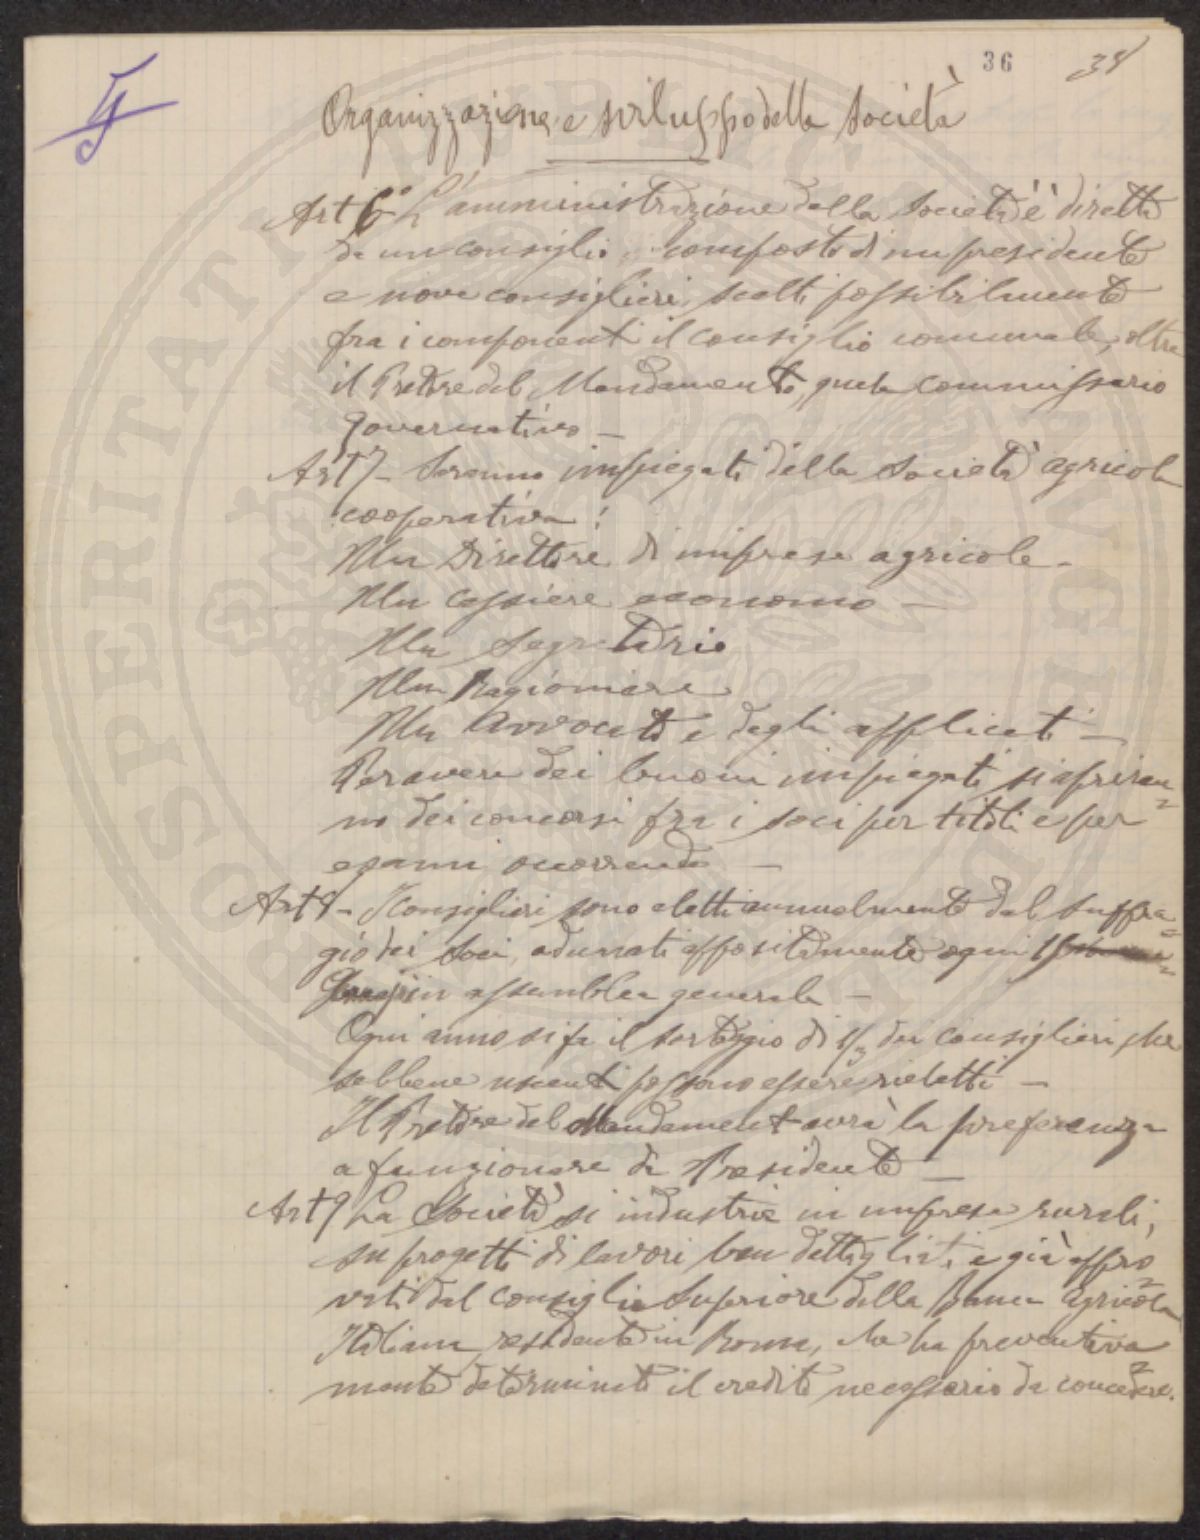 36 38
5
Organizzazione e sviluppo della Società
Art 6° L'amministrazione della Società è diretta
da un consiglio, composto di un presidente
e nove consiglieri, scelti possibilmente
fra i componenti il Consiglio comunale, oltre
il Pretore del Mandamento, quale Commissario
governativo —
Art 7 - Saranno impiegati della Società agricola
cooperativa:
Un Direttore di imprese agricole -
Un cassiere economo —
Un Segretario
Un Ragioniere
Un Avvocato e degli applicati —
Per avere dei buoni impiegati si apriran=
no dei concorsi fra i soci per titoli e per
esami occorrendo —
Art 8 - I Consiglieri sono eletti annualmente dal suffra=
gio dei Soci, adunati appositamente ogni 1°
in assemblea generale —
Ogni anno si fa il sorteggio di 1/3 dei Consiglieri, che
sebbene uscenti possono essere rieletti —
Il Pretore del Mandamento avrà la preferenza
a funzionare da Presidente —
Art 9 La Società si industria in imprese rurali,
su progetti di lavori ben dettagliati, e già appro=
vati dal Consiglio Superiore della Banca Agricola
Italiana residente in Roma, che ha preventiva=
mente determinato il credito necessario da concedere.
PROSPERITATI PUBLICAE AUGENDAE